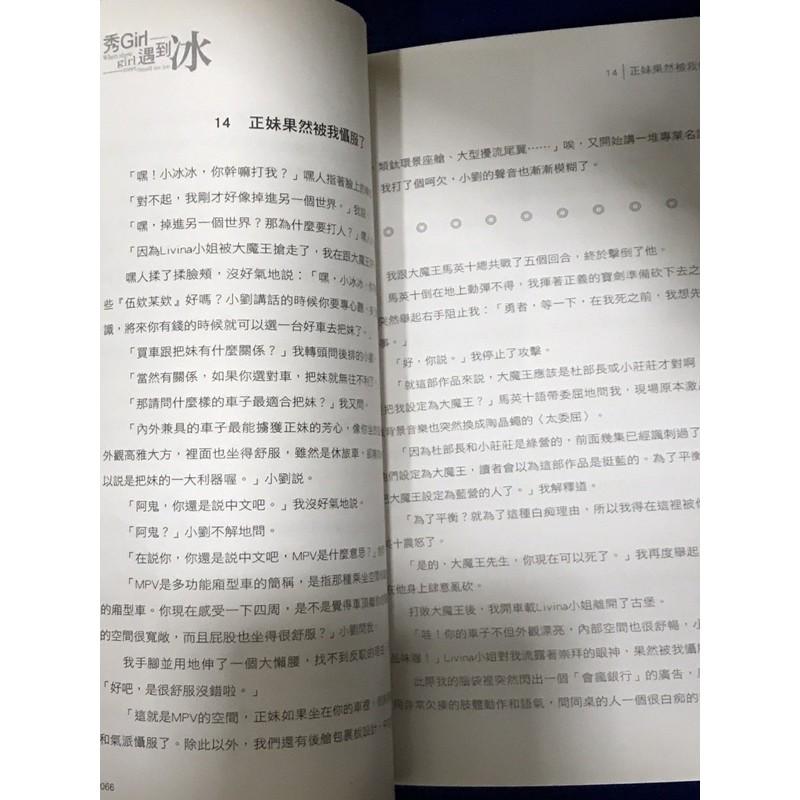 秀Girl
遇到冰
14 正妹果然被我懾服了
「嘿!小冰冰,你幹嘛打我?」嘿人指著臉上的
「對不起,我剛才好像掉進另一個世界。」我說
「嘿,掉進另一個世界?那為什麼要打人?」嘿
「因為Livina小姐被大魔王搶走了,我在跟大魔王
嘿人揉了揉臉頰,沒好氣地説:「嘿,小冰冰,
些『伍欸某欸』好嗎?小劉講話的時候你要專心聽,
識,將來你有錢的時候就可以選一台好車去把妹了。
「買車跟把妹有什麼關係?」我轉頭問後排的小劉
「當然有關係,如果你選對車,把妹就無往不利
「那請問什麼樣的車子最適合把妹?」我又問。
「內外兼具的車子最能擄獲正妹的芳心,像你坐的
外觀高雅大方,裡面也坐得舒服,雖然是休旅車,
以說是把妹的一大利器喔。」小劉説。
「阿鬼,你還是説中文吧。」我沒好氣地説。
「阿鬼?」小劉不解地問。
「在説你,你還是説中文吧,MPV是什麼意思?」
「MPV是多功能廂型車的簡稱,是指那種乘坐空間
的廂型車。你現在感受一下四周,是不是覺得車頂
的空間很寬敞,而且屁股也坐得很舒服?」小劉問我。
我手腳並用地伸了一個大懶腰,找不到反駁的
「好吧,是很舒服沒錯啦。」
「這就是MPV的空間,正妹如果坐在你的車裡,
和氣派懾服了。除此以外,我們還有後艙包裹板設計,
066
14 | 正妹果然被我
類鈦環景座艙、大型擾流尾翼……」唉,又開始講一堆專業名
我打了個呵欠,小劉的聲音也漸漸模糊了。
◎ ◎ ◎ ◎ ◎ ◎ ◎ ◎ ◎
我跟大魔王馬英十總共戰了五個回合,終於擊倒了他。
馬英十倒在地上動彈不得,我揮著正義的寶劍準備砍下去之
突然舉起右手阻止我:「勇者,等一下,在我死之前,我想先
事。」
「好,你説。」我停止了攻擊。
「就這部作品來說,大魔王應該是杜部長或小莊莊才對啊
把我設定為大魔王?」馬英十語帶委屈地問我,現場原本激
背景音樂也突然換成陶晶蠅的〈太委屈〉。
「因為杜部長和小莊莊是綠營的,前面幾集已經諷刺過了
們設定為大魔王,讀者會以為這部作品是挺藍的。為了平衡
把大魔王設定為藍營的人了。」我解釋道。
「為了平衡?就為了這種白痴理由,所以我得在這裡被你
英十震怒了。
「是的,大魔王先生,你現在可以死了。」我再度舉起
在他身上肆意亂砍。
打敗大魔王後,我開車載Livina小姐離開了古堡。
「哇!你的車子不但外觀漂亮,內部空間也很舒暢,小
品味喔!」Livina小姐對我流露著崇拜的眼神,果然被我懾服
此際我的腦袋裡突然閃出一個「會瘋銀行」的廣告,
非常欠揍的肢體動作和語氣,問同桌的人一個很白痴的